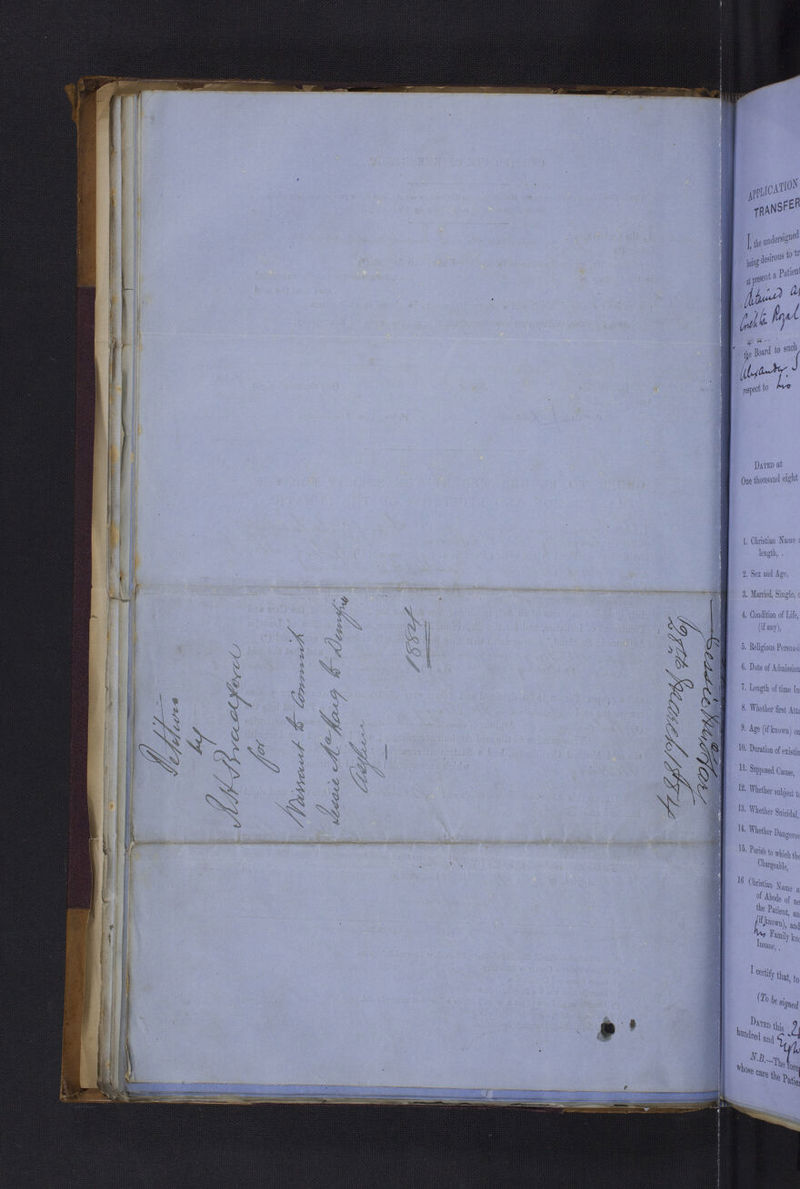 Petition
by
for
Warrant to Commit
Jessie McHarg to Dumfries
Asylum
1884
Jessie McHarg
March 1884
APPLICATION
TRANSFER
I, the undersigned
being desirous to tr
at present a Patient
detained a
Royal
the Board to such
Alexander S
respect to his
DATED at
One thousand eight
1. Christian Name a
length, .
2. Sex and Age,
3. Married, Single, o
4. Condition of Life,
(if any),
5. Religious Persuasi
6. Date of Admission
7. Length of time In
8. Whether first Atta
9. Age (if known) on
10. Duration of existin
11. Supposed Cause,
12. Whether subject to
13. Whether Suicidal,
14. Whether Dangerou
15. Parish to which the
Chargeable,
16 Christian Name a
of Abode of ne
the Patient, an
(if known), and
his Family kno
Insane, .
I certify that, to
(To be signed
DATED this 2
hundred and Eigh
N.B.—The
whose care the Patien